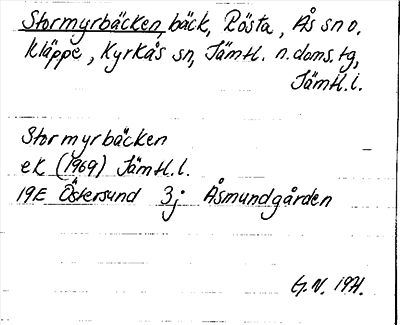 Stormyrbäcken, bäck, Rösta, Ås sn o.
Kläppe, Kyrkås sn, Jämtl. n. doms. tg,
Jämtl. l.
Stormyrbäcken
ek (1969) Jämtl. l.
19E Östersund 3j Åsmundgården
G. N. 1971.